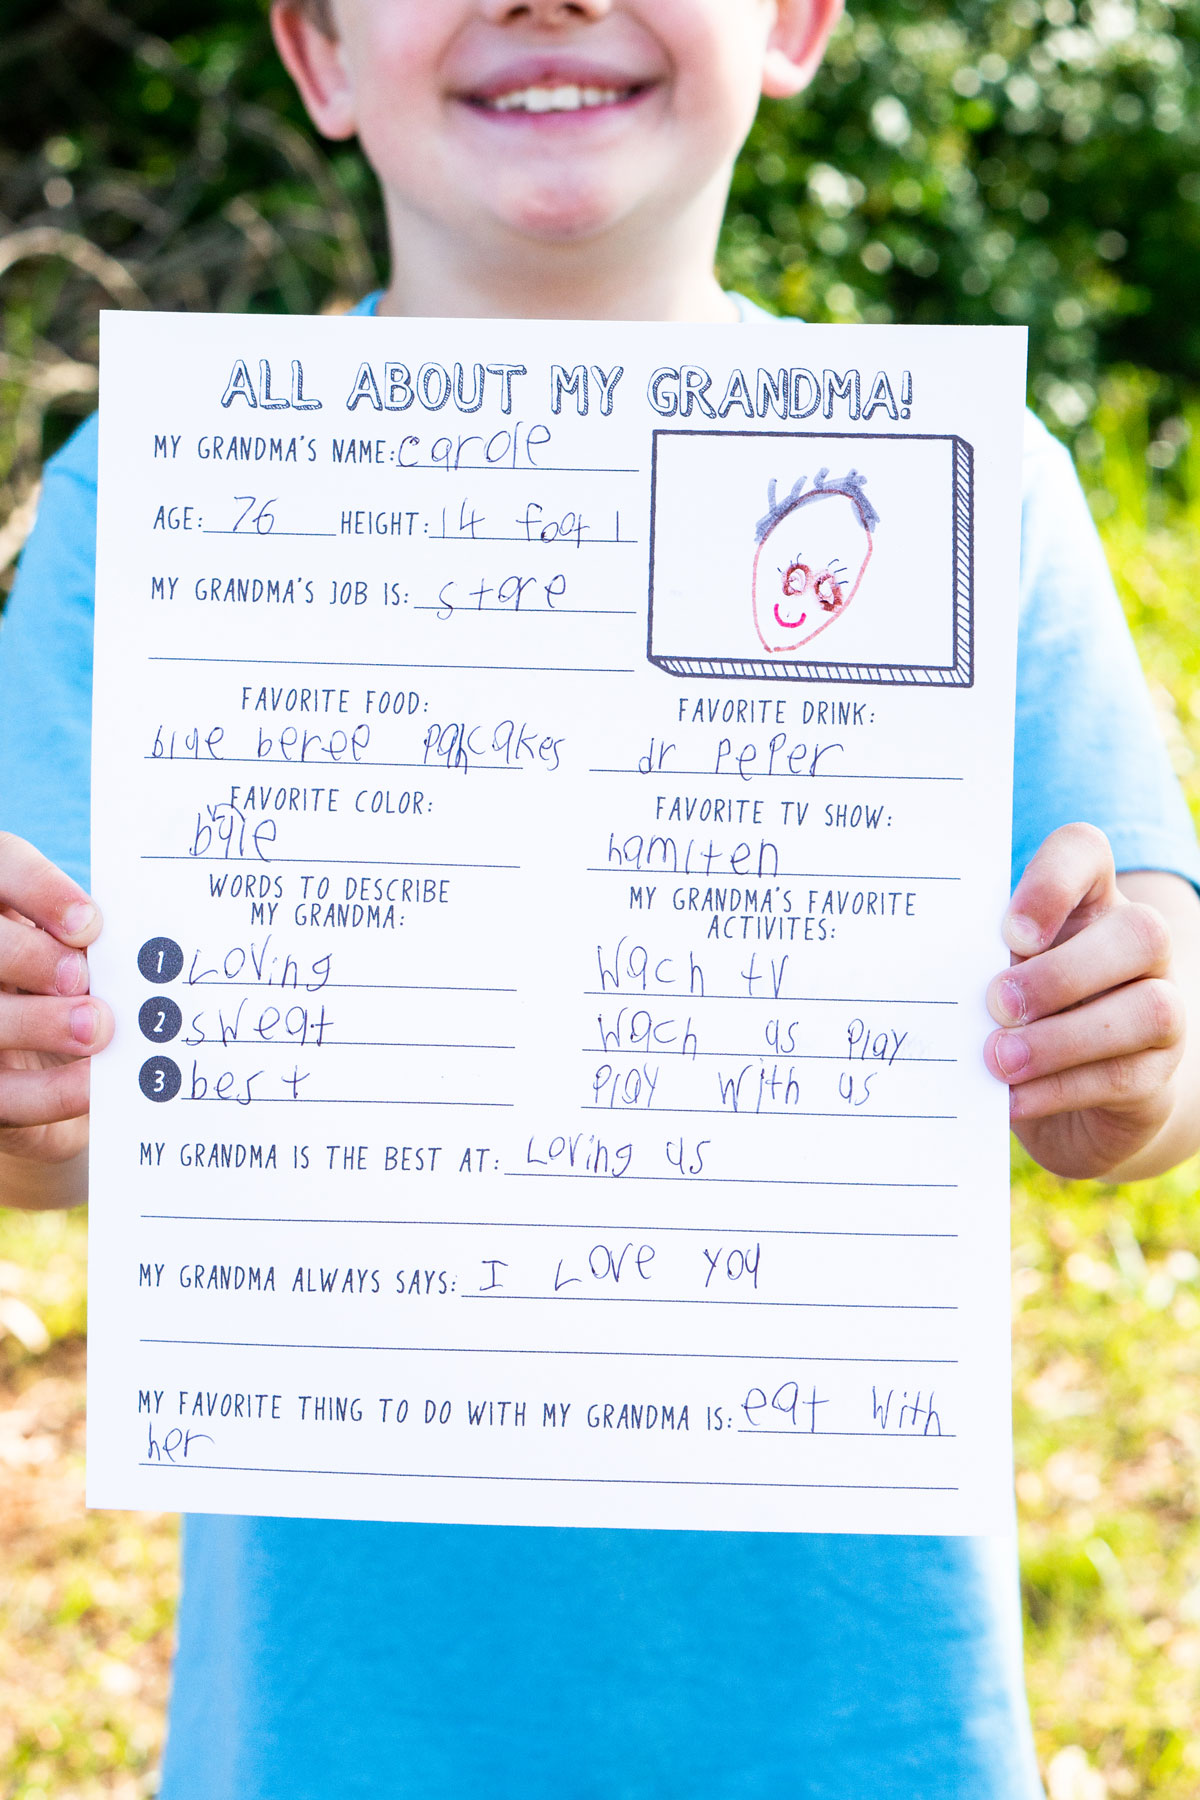 ALL ABOUT MY GRANDMA!
MY GRANDMA'S NAME: carole
AGE: 76 HEIGHT: 14 foot 1
MY GRANDMA'S JOB IS: store
FAVORITE FOOD:
blue beree pancakes
FAVORITE DRINK:
dr PePer
FAVORITE COLOR:
FAVORITE TV SHOW:
hamiten
WORDS TO DESCRIBE
MY GRANDMA:
1 Loving
2 sweat
3 best
MY GRANDMA'S FAVORITE
ACTIVITES:
Wach tv
Wach us Play
Play With us
MY GRANDMA IS THE BEST AT: Loving us
MY GRANDMA ALWAYS SAYS: I Love you
MY FAVORITE THING TO DO WITH MY GRANDMA IS: eat With
her